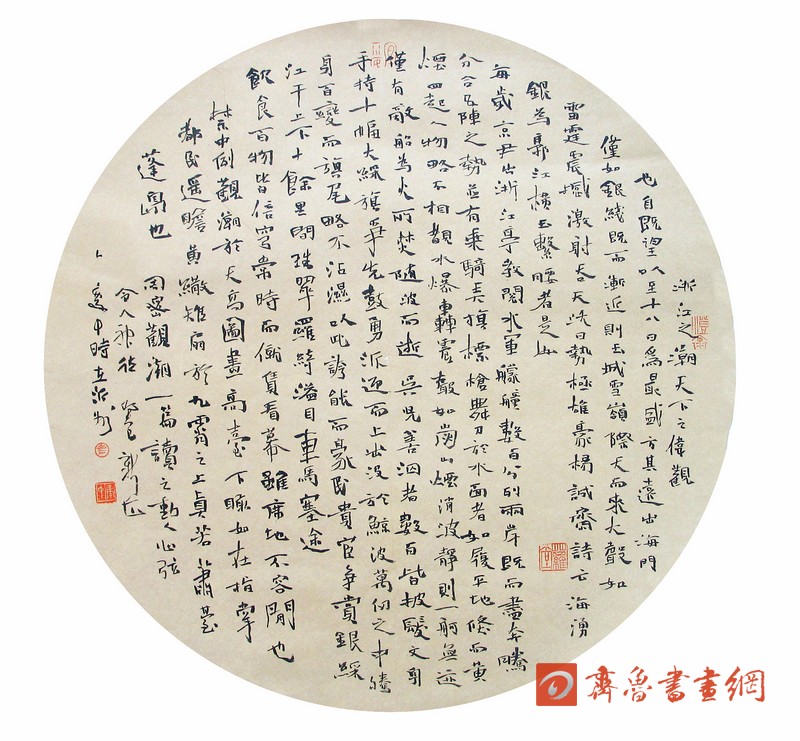 浙江之潮天下之偉觀
也自既望以至十八日為最盛方其遠出海門
僅如銀綫既而漸近則玉城雪嶺際天而來大聲如
雷霆震撼激射吞天沃日勢極雄豪楊誠齋詩云海湧
銀為郭江橫玉繫腰者是也
每歲京尹出浙江亭教閱水軍艨艟數百分列兩岸既而盡奔騰
分合五陣之勢並有乘騎弄旗標槍舞刀於水面者如履平地倐而黄
煙四起人物略不相覩水爆轟震聲如崩山煙消波靜則一舸無迹
僅有敵船為火所焚隨波而逝吳兒善泅者數百皆披髮文身
手持十幅大綵旗爭先鼓勇泝迎而上出沒於鯨波萬仞之中騰
身百變而旗尾略不沾濕以此誇能而豪民貴宦爭賞銀綵
江干上下十餘里間珠翠羅綺溢目車馬塞途
飲食百物皆倍穹常時而僦賃看幕雖席地不容閒也
禁中例觀潮於天高圖畫高臺下瞰如在指掌
都民遥瞻黄繖雉扇於九霄之上真若簫臺
蓬島也 周密觀潮一篇讀之動人心弦
令人神往 癸巳
時在沂州
齊魯書畫網